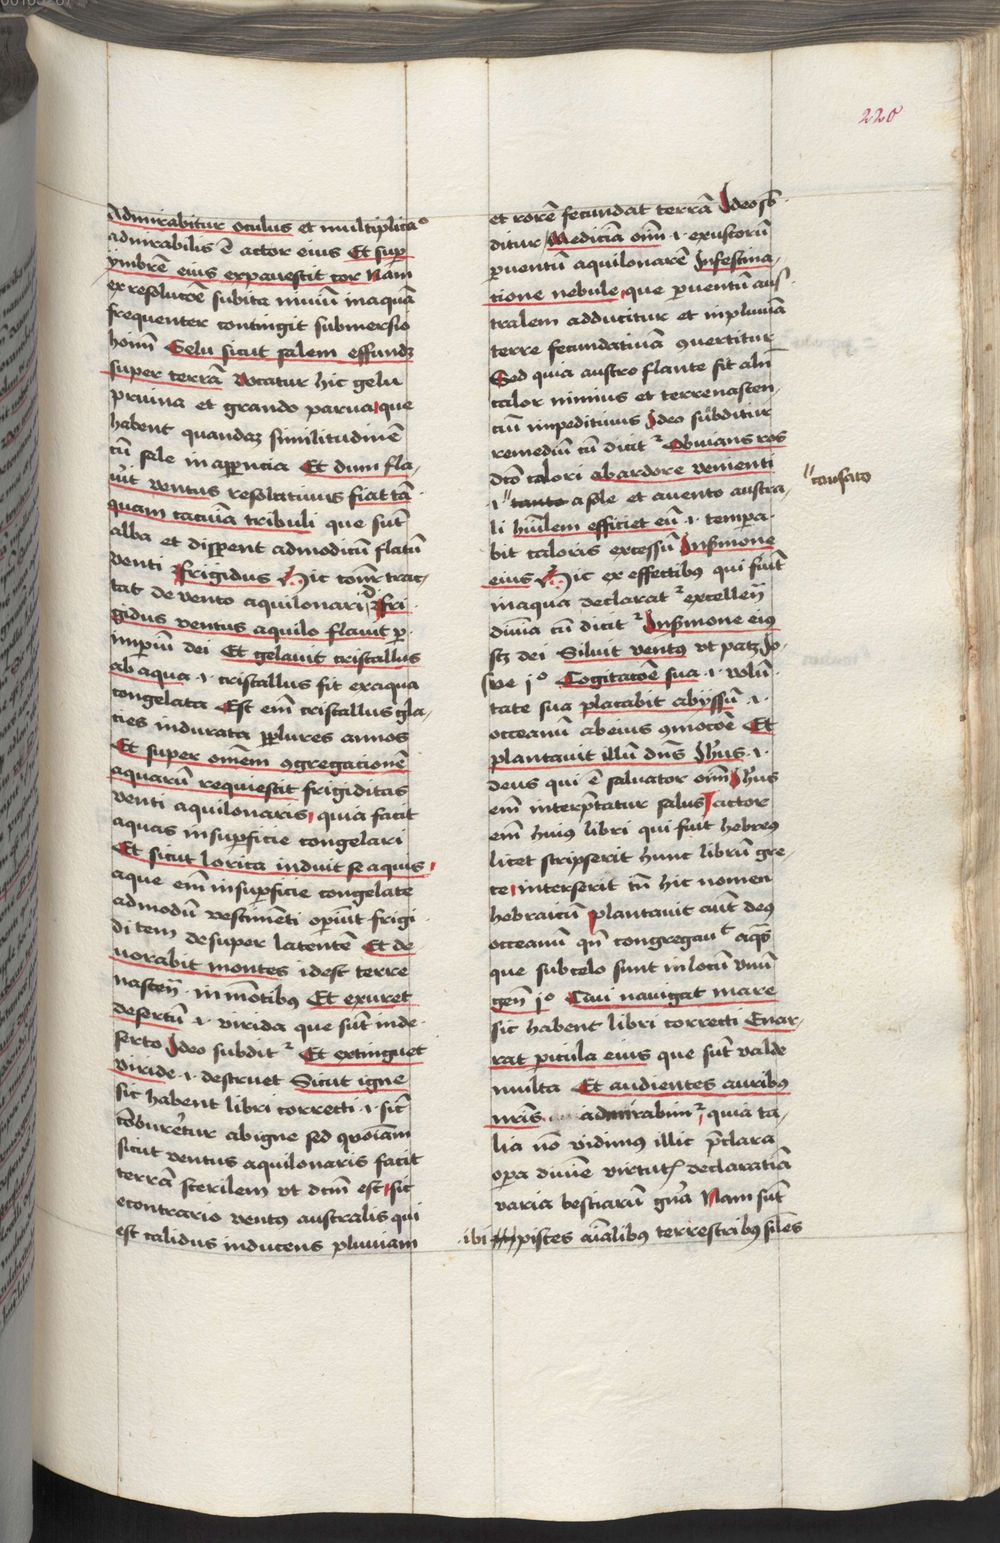 220
Admirabitur oculus et multiplica°
admirabilis ē actor eius Et sup
ymbrē eius expauescit cor Nam
ex resolucōe subita niuiū in aquā
frequenter contingit submersio
homī Gelu sicut salem effundz
super terrā vocatur hic gelu
pruina et grando parua que
habent quandaz similitudinē
cū sale in apparencia Et dum fla
uit ventus resolutiuus fiat tā
quam cacuīa tribuli que sūt
alba et disperent ad modicū flatū
venti frigidus Hic tractat
tat de vento aquilonari fri
gidus ventus aquilo flauit p
imperiū dei Et gelauit cristallus
ab aqua .i. cristallus fit ex aqua
congelata Est enī cristallus gla
cies indurata p plures annos
Et super omēm 9gregacionē
aquarū requiescit frigiditas
venti aquilonaris quia facit
aquas in supficie congelari
Et sicut lorica induit se aquis
aque enī in supficie congelate
ad modū vestimēti opiūt frigi
di tem desuper latentē Et de
uorabit montes idest terre
nascenīj in mōtibus Et exuret
desertū .i. virida que sūt in de
serto Ideo subdit² Et extinguet
viride .i. destruet Sicut igne
sic habent libri correcti .i. sic
cōburētur ab igne sed quoīam
sicut ventus aquilonaris facit
terrā sterilem vt dcm̄ est sic
econtrario ventus australis qui
est calidus inducens pluuiam
et rorē fecundat terrā Ideo sb
ditur Medicīa oīm .i. exustorū
p ventū aquilonarē In festina
tione nebule que p ventū aus
tralem adducitur et in pluuiā
terre fecundatiuā 9uertitur
Sed quia austro flante fit aliī
calor nimius et terre nascen
ciū impeditiuus Ideo subditur
remediū cū dicit² Obuians ros
dc̄o calori ab ardore venienti
.i. " tanto a sole et a vento austra
"causato
li hūilem efficiet eū .i. tempa
bit caloris excessū In sermone
eius Hic ex effectibus qui fiūt
in aqua declarat² excellenī
diuīa cū dicit² In sermone eius
scz dei Siluit ventus vt patz Jo
ue j° Cogitacōe sua .i. volū
tate sua placabit abyssū .i.
occeanū ab eius 9mocōe Et
plantauit illū dn̄s Jhūs .i.
deus qui ē saluator oīm Jhūs
enī interptatur salus actor
enī huius libri qui fuit hebreus
licet scripserit hunc librū gre
ce interserit tn̄ hic nomen
hebraicū plantauit aūt deus
occeanū qn̄ congregauᵗ aqs
que sub celo sunt in locū vnū
gen̄ j° Qui nauigat mare
sic habent libri correcti Enar
rat picula eius que sūt valde
multa Et audientes auribus
nr̄is admirabim² quia ta
lia nō vidimus illic p̄clara
opa diuine virtut declaratiā
varia bestiarū gn̄a Nam sūt
ibi pisces aīalibus terrestribus siles